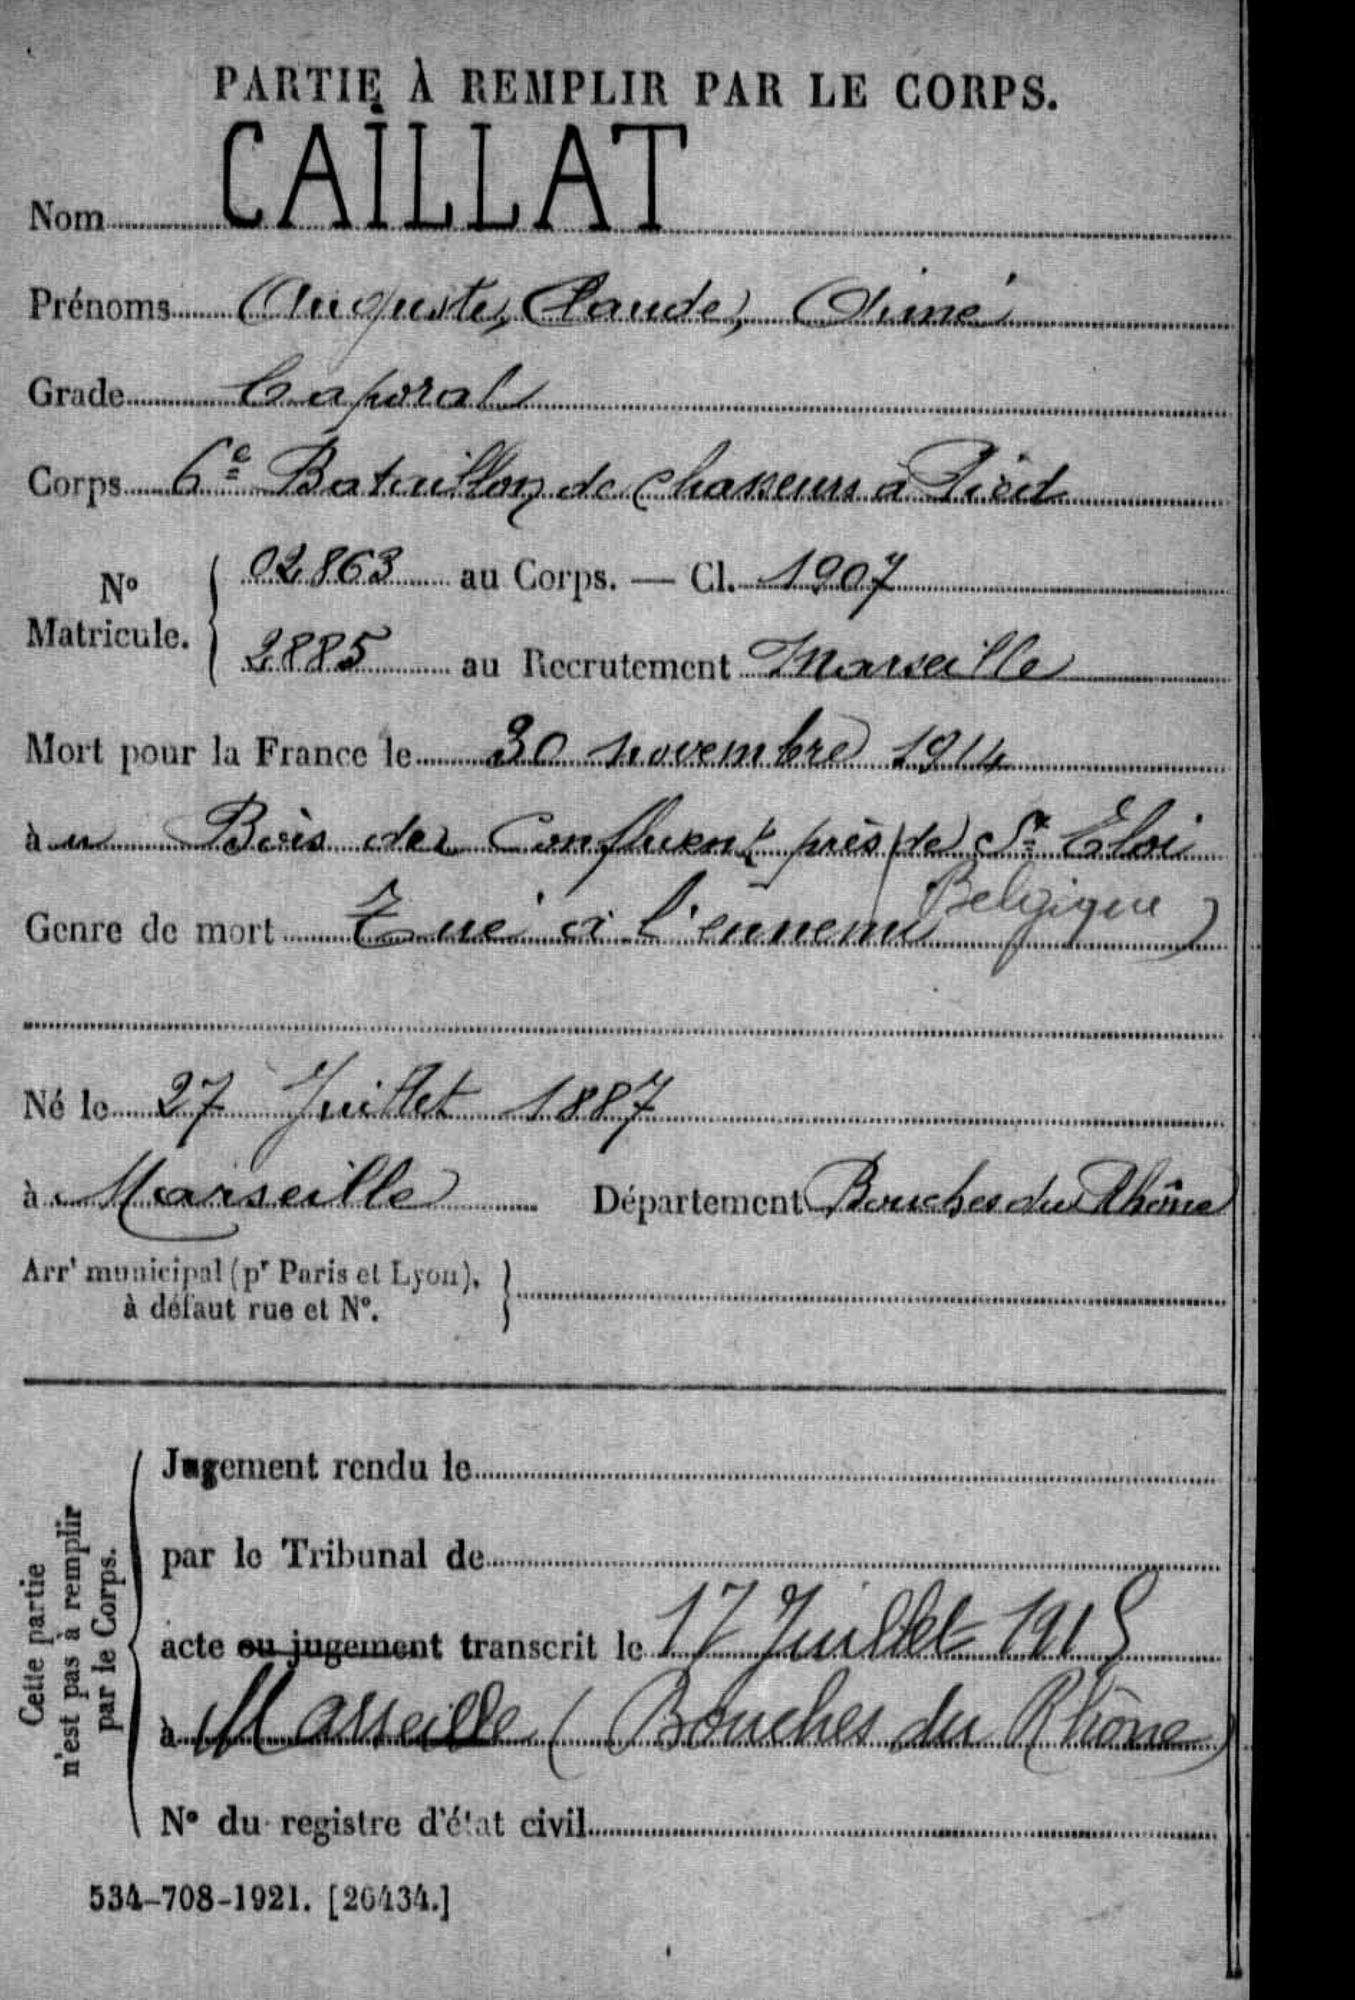 PARTIE À REMPLIR PAR LE CORPS.
Nom CAILLAT
Prénoms Auguste, Claude, Aimé
Grade Caporal
Corps 6e Bataillon de Chasseurs à Pied
No Matricule. 02863 au Corps. — Cl. 1907
2885 au Recrutement Marseille
Mort pour la France le 30 novembre 1914
à u Bois du Confluent près de St Eloi
Belgique)
Genre de mort Tué à l'ennemi
Né le 27 Juillet 1887
à Marseille Département Bouches du Rhône
Arrt municipal (pr Paris et Lyon),
à défaut rue et No.
Cette partie
n'est pas à remplir
par le Corps.
Jugement rendu le
par le Tribunal de
acte ou jugement transcrit le 17 Juillet 1915
à Marseille (Bouches du Rhône)
No du registre d'état civil
534-708-1921. [26434.]